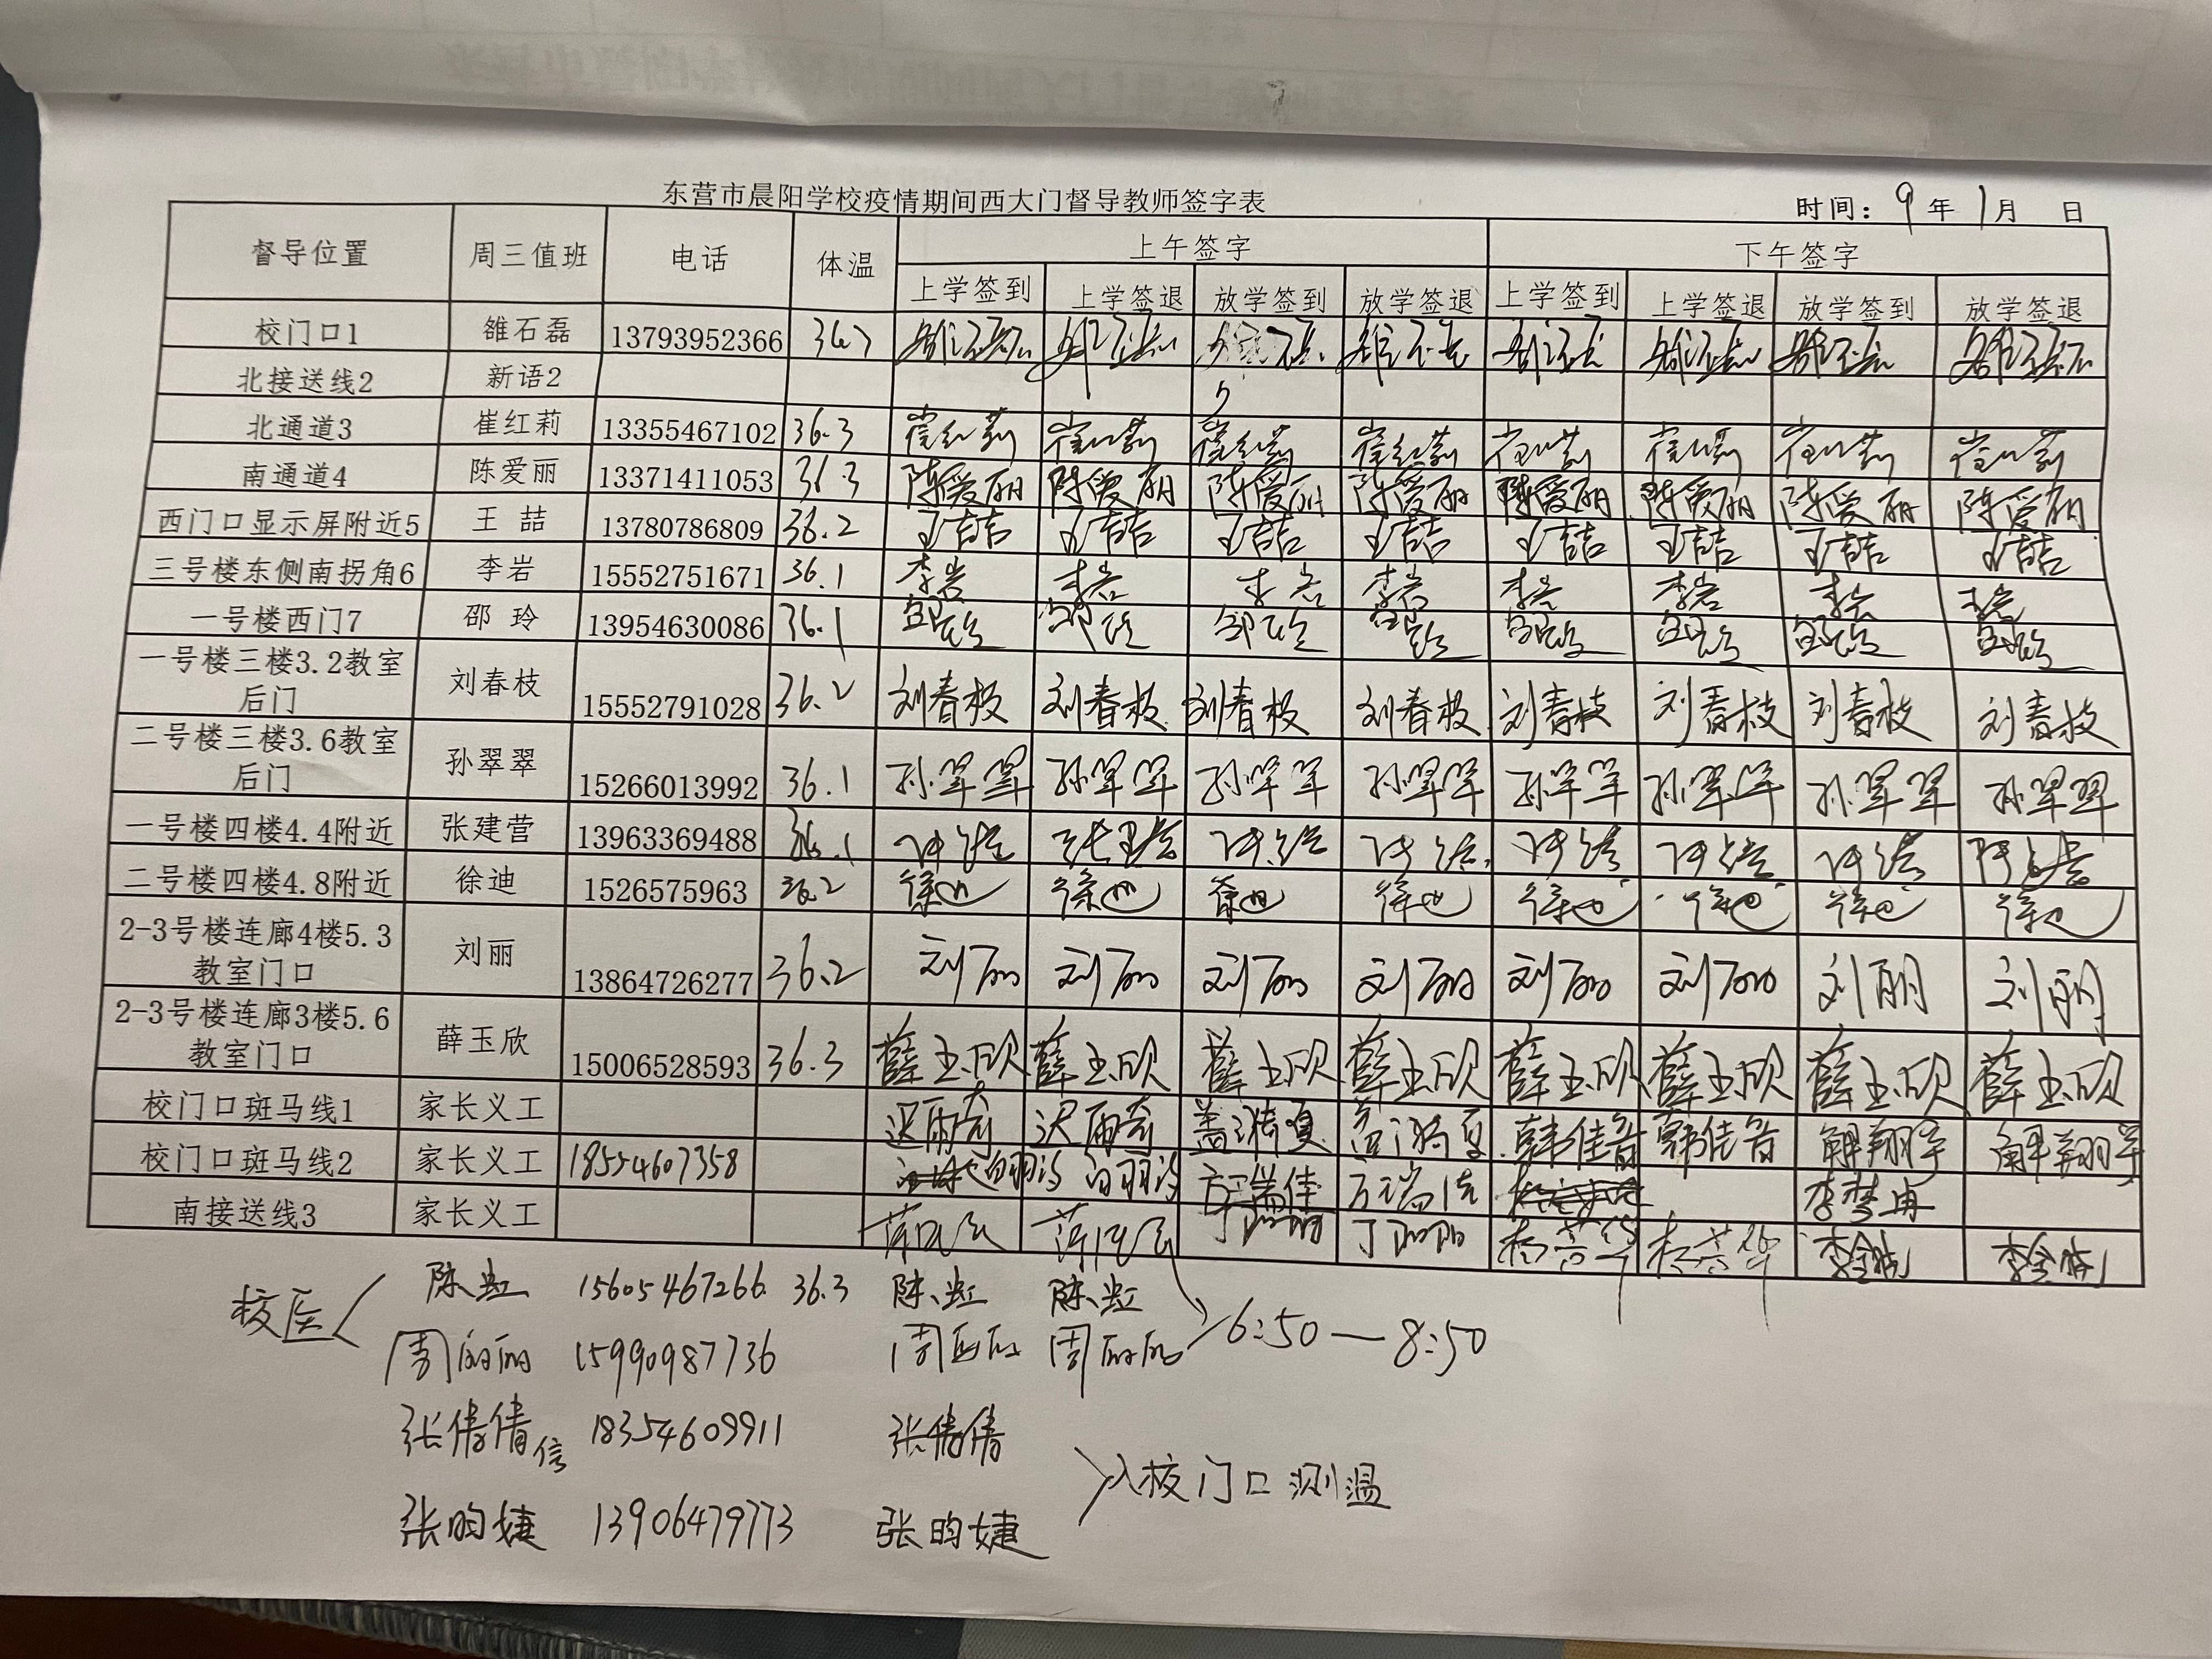 东营市晨阳学校疫情期间西大门督导教师签字表
时间：9年1月 日
督导位置 周三值班 电话 体温 上午签字 下午签字
上学签到 上学签退 放学签到 放学签退 上学签到 上学签退 放学签到 放学签退
校门口1 雒石磊 13793952366 36.7
北接送线2 新语2
北通道3 崔红莉 13355467102 36.3 崔红莉 崔红莉 崔红莉 崔红莉 崔红莉 崔红莉 崔红莉 崔红莉
南通道4 陈爱丽 13371411053 36.3 陈爱丽 陈爱丽 陈爱丽 陈爱丽 陈爱丽 陈爱丽 陈爱丽 陈爱丽
西门口显示屏附近5 王 喆 13780786809 36.2 王喆 王喆 王喆 王喆 王喆 王喆 王喆 王喆
三号楼东侧南拐角6 李岩 15552751671 36.1 李岩 李岩 李岩 李岩 李岩 李岩 李岩 李岩
一号楼西门7 邵 玲 13954630086 36.1 邵玲 邵玲 邵玲 邵玲 邵玲 邵玲 邵玲 邵玲
一号楼三楼3.2教室
后门 刘春枝 15552791028 36.2 刘春枝 刘春枝 刘春枝 刘春枝 刘春枝 刘春枝 刘春枝 刘春枝
二号楼三楼3.6教室
后门 孙翠翠 15266013992 36.1 孙翠翠 孙翠翠 孙翠翠 孙翠翠 孙翠翠 孙翠翠 孙翠翠 孙翠翠
一号楼四楼4.4附近 张建营 13963369488 36.1
二号楼四楼4.8附近 徐迪 1526575963 36.2 徐迪 徐迪 徐迪 徐迪 徐迪 徐迪 徐迪 徐迪
2-3号楼连廊4楼5.3
教室门口 刘丽 13864726277 36.2 刘丽 刘丽 刘丽 刘丽 刘丽 刘丽 刘丽 刘丽
2-3号楼连廊3楼5.6
教室门口 薛玉欣 15006528593 36.3 薛玉欣 薛玉欣 薛玉欣 薛玉欣 薛玉欣 薛玉欣 薛玉欣 薛玉欣
校门口斑马线1 家长义工 迟雨奇 迟雨奇 韩佳音 韩佳音 解翔宇 解翔宇
校门口斑马线2 家长义工 18554607358 方瑞佳 方瑞佳 李梦冉
南接送线3 家长义工 丁阳阳 丁阳阳
校医 陈虹 15605467266 36.3 陈虹 陈虹
周丽丽 15990987736 周丽丽 周丽丽 6:50—8:50
张倩倩 信 18354609911 张倩倩
入校门口测温
张昀婕 13906479773 张昀婕